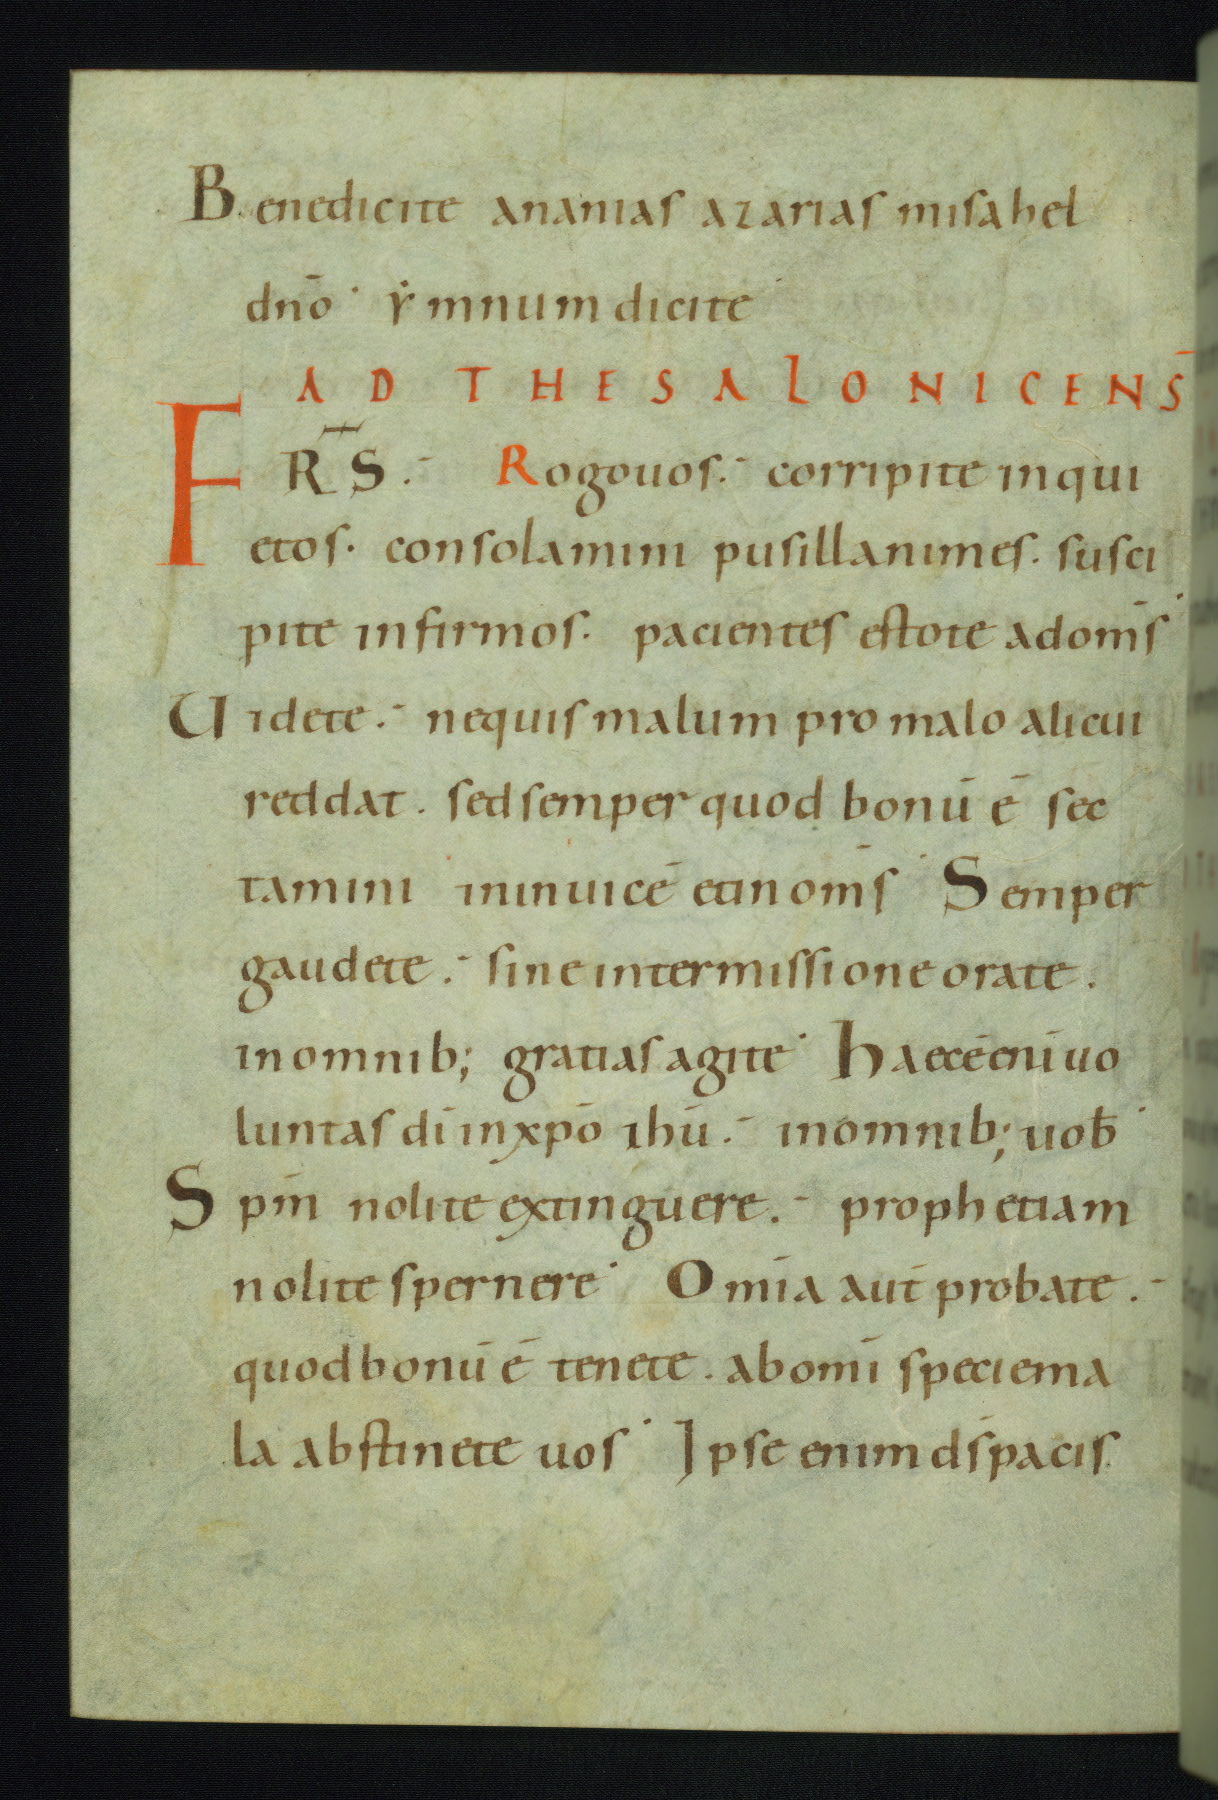 Benedicite ananias azarias misahel
dn̄o· ẏmnum dicite
AD THESALONICENS̄
FR̄S. Rogo uos. corripite inqui
etos. consolamini pusillanimes. susci
pite infirmos. pacientes estote ad om̄s·
Uidete. ne quis malum pro malo alicui
reddat. sed semper quod bonū ē sec
tamini in inuicē et in om̄s· Semper
gaudete. sine intermissione orate.
in omnib; gratias agite· Haec ē enī uo
luntas dī in xpō ihū. in omnib; uob̄·
Sp̄m nolite extinguere. prophetiam
nolite spernere· Om̄ia aut̄ probate.
quod bonū ē tenete. ab om̄i specie ma
la abstinete uos· Ipse enim ds̄ pacis